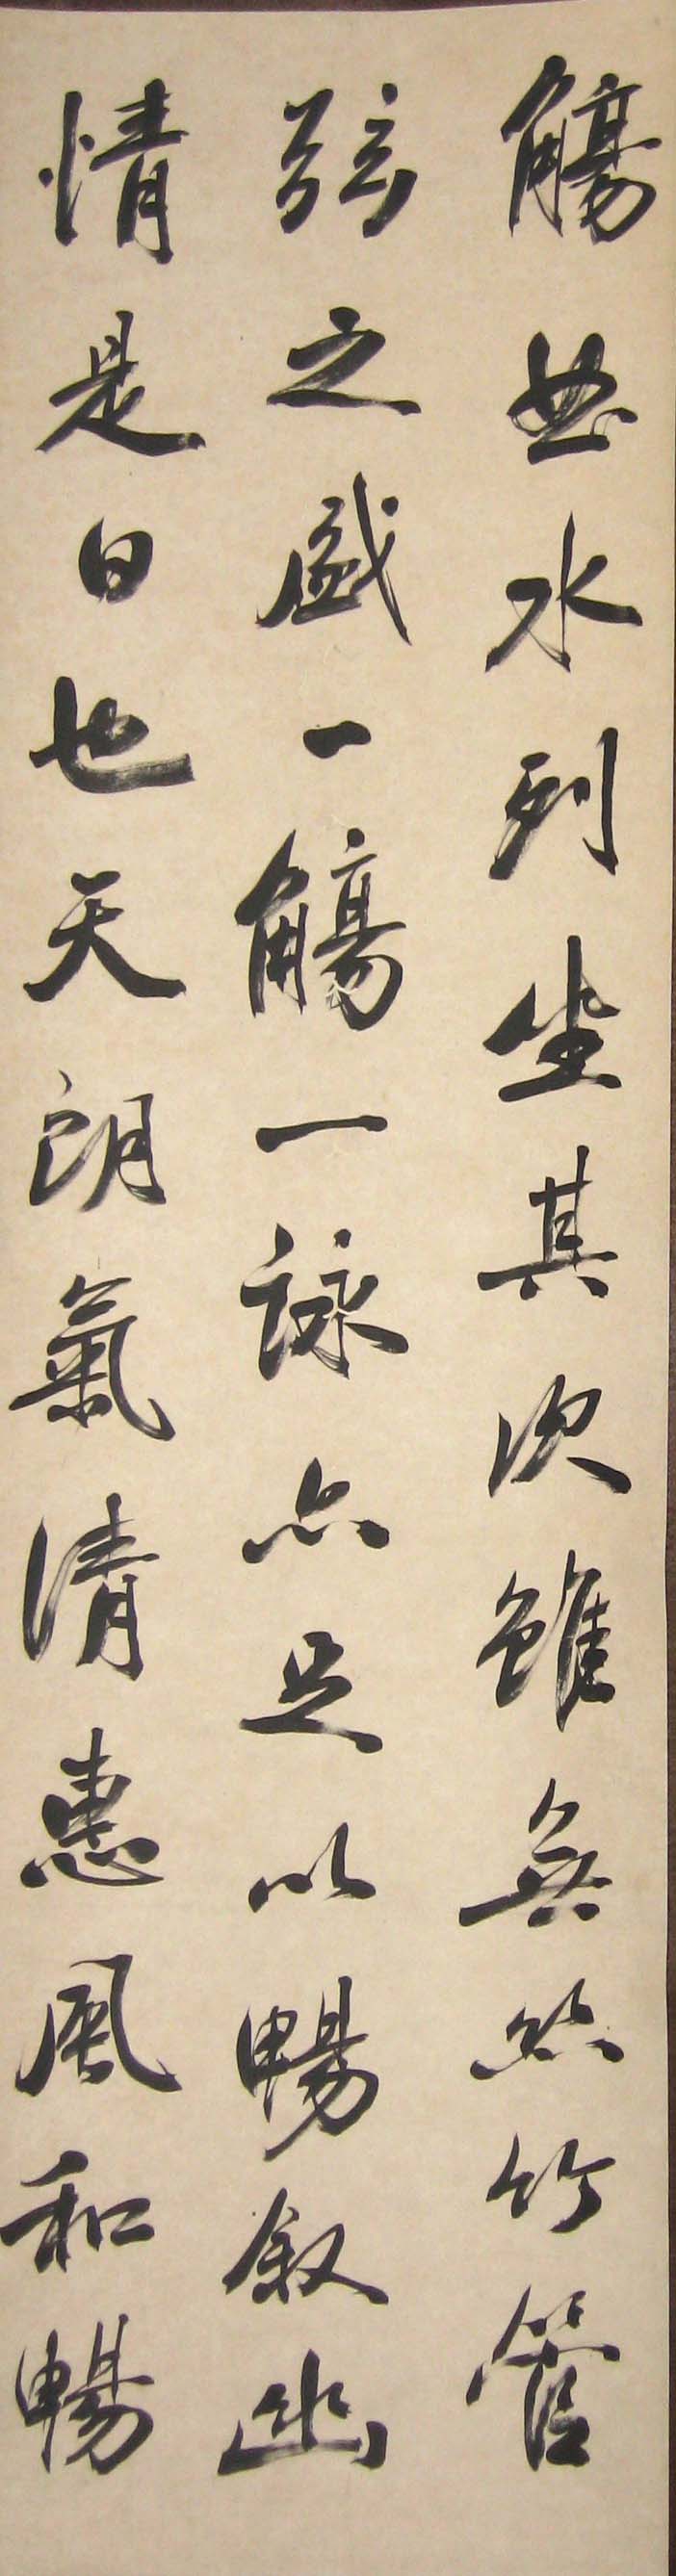 觴曲水列坐其次雖無絲竹管
弦之盛一觴一詠亦足以暢叙幽
情是日也天朗氣清惠風和暢